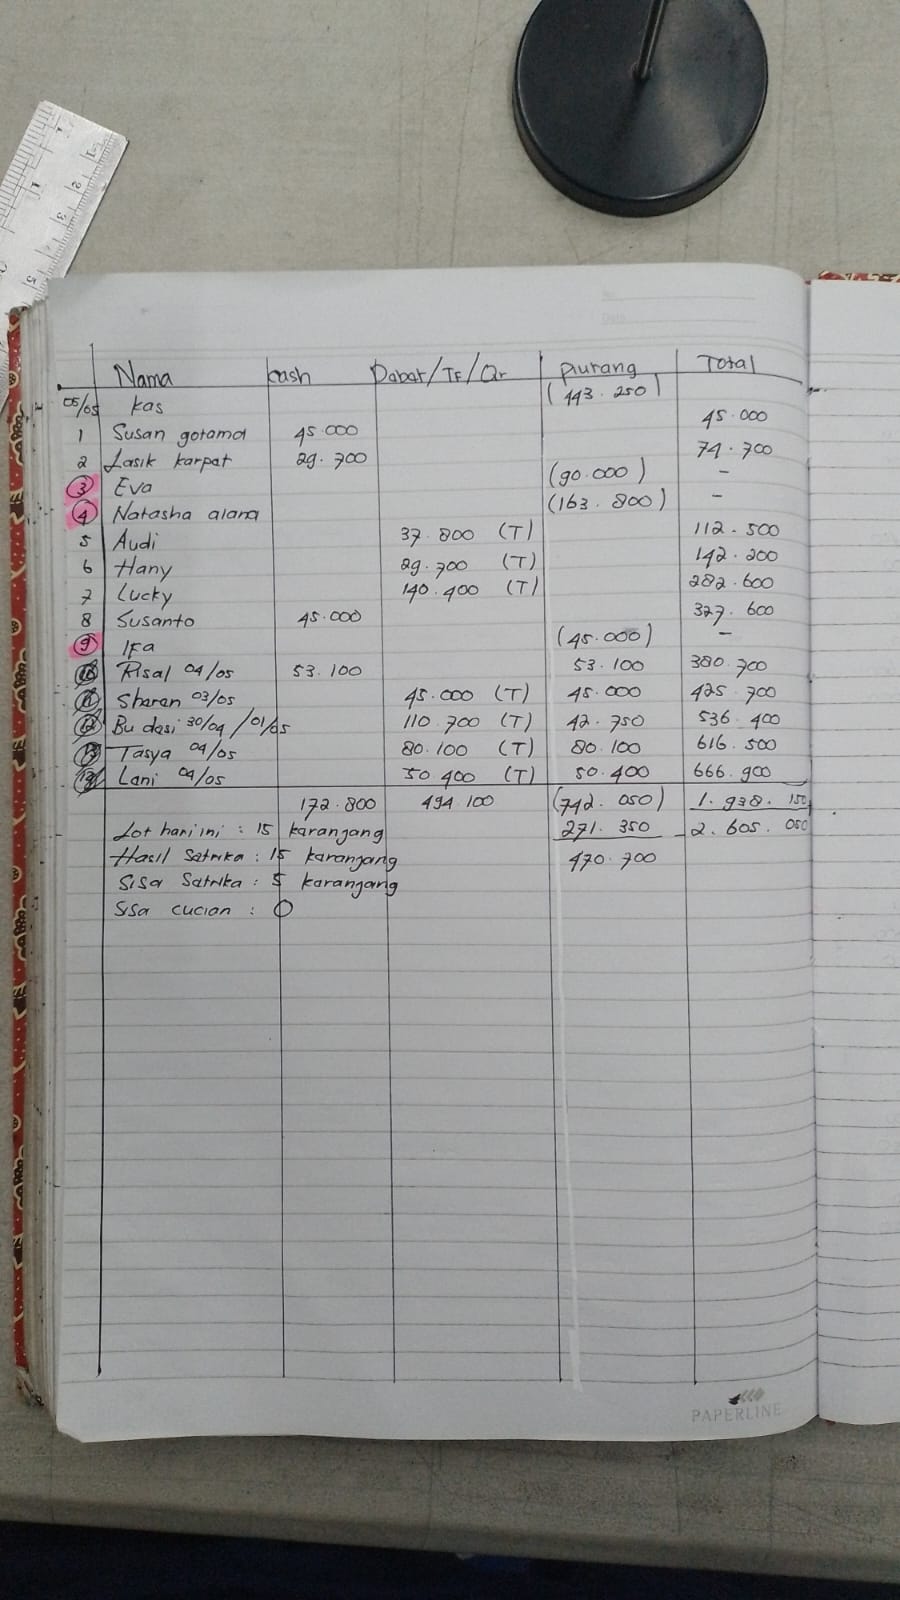 Nama Cash Dabat/TF/Qr Piutang Total
05/05 kas (443.250)
1 Susan gotama 45.000 45.000
2 Lasik karpat 29.700 74.700
3 Eva (90.000) -
4 Natasha alana (163.800) -
5 Audi 37.800 (T) 112.500
6 Hany 29.700 (T) 142.200
7 Lucky 140.400 (T) 282.600
8 Susanto 45.000 327.600
9 Ifa (45.000) -
10 Risal 04/05 53.100 53.100 380.700
11 Sharan 03/05 45.000 (T) 45.000 425.700
12 Bu dasi 30/04 /01/05 110.700 (T) 42.750 536.400
13 Tasya 04/05 80.100 (T) 80.100 616.500
14 Lani 04/05 50.400 (T) 50.400 666.900
172.800 494.100 (742.050) 1.938.150
Lot hari ini : 15 karanjang 271.350 2.605.050
Hasil Satrika : 15 karanjang 470.700
Sisa Satrika : 5 karanjang
Sisa cucian : 0
PAPERLINE